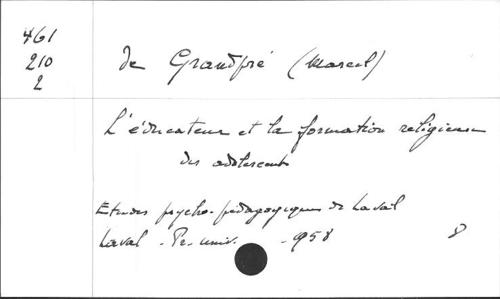 461
210
2
de Grandpré (Marcel)
L'éducateur et la formation religieuse
des adolescents
Etudes psycho-pédagogiques de Laval
Laval - Pr. univ. - 1958
8